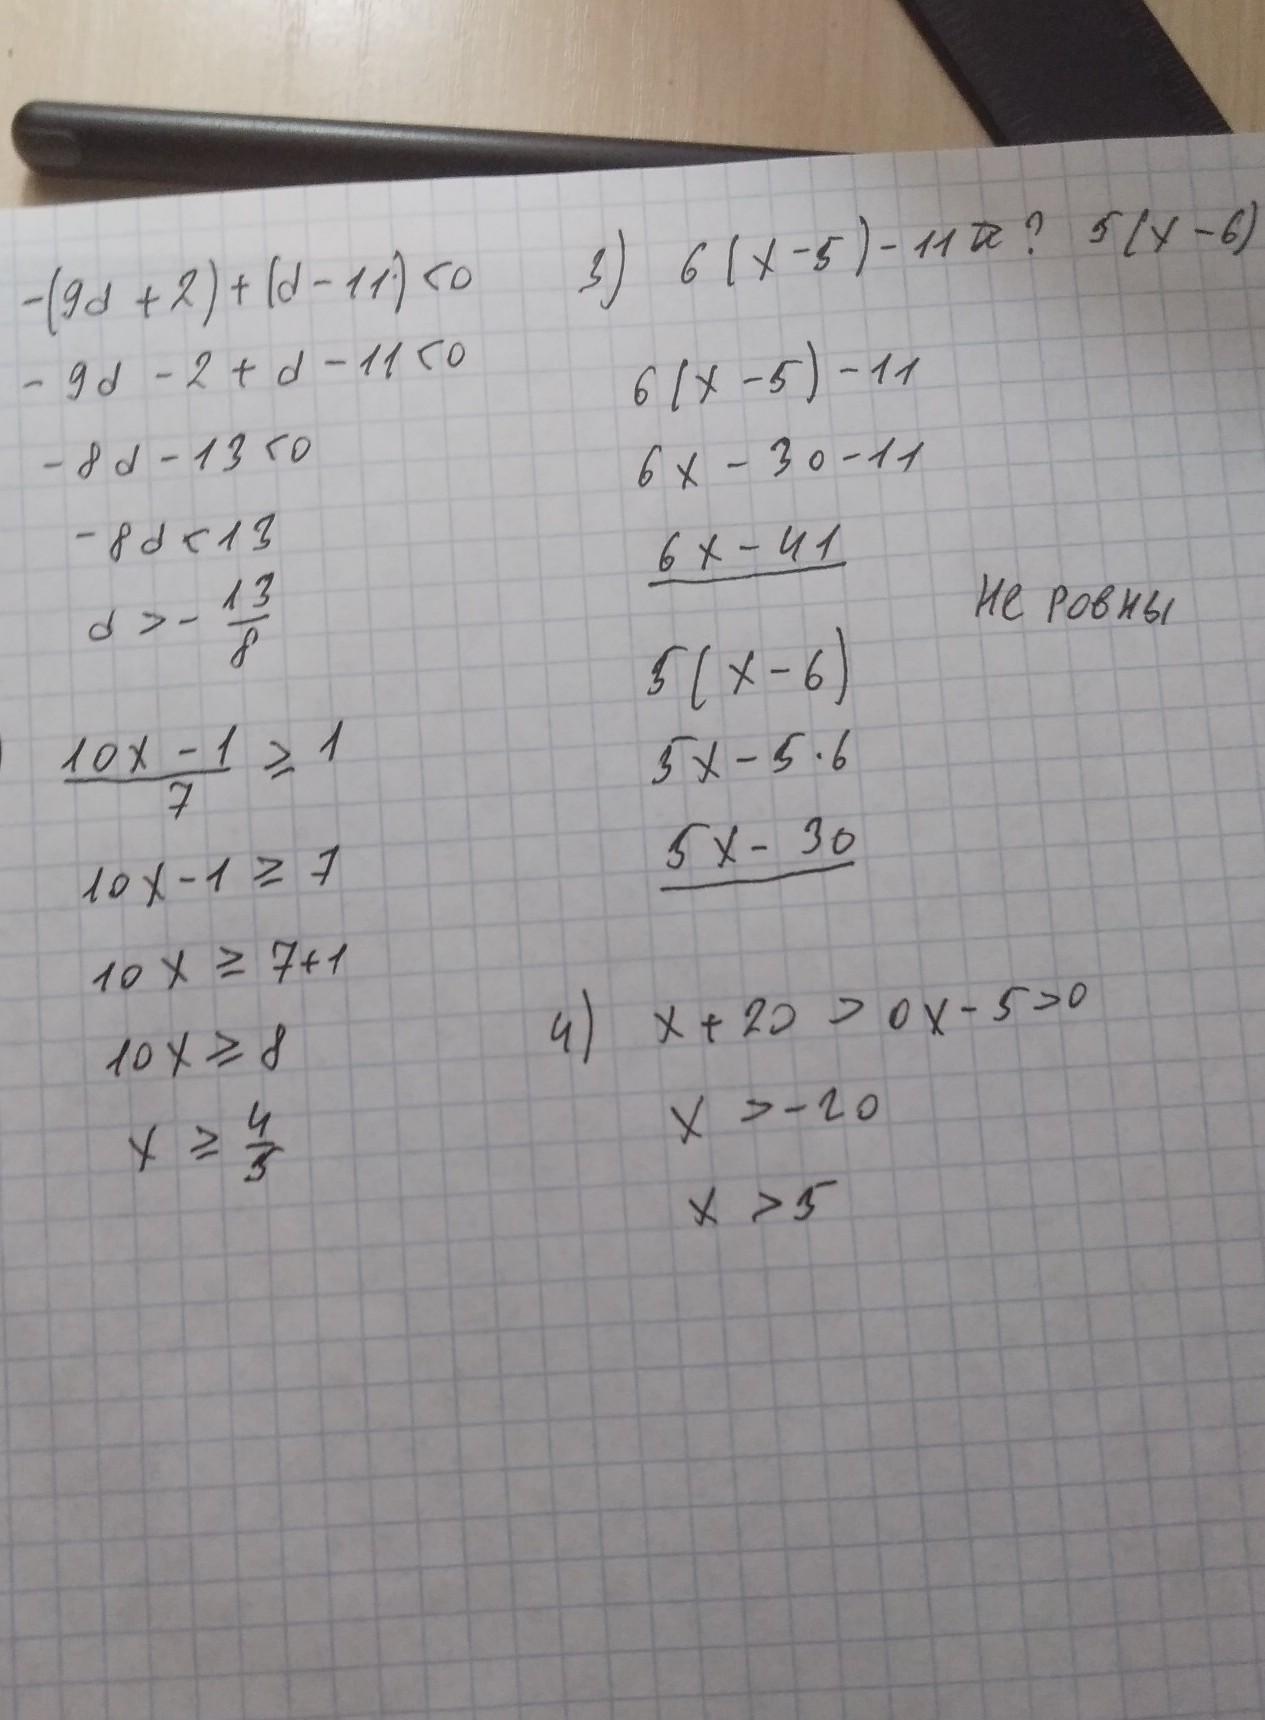 -(9d + 2) + (d - 11) < 0
- 9d - 2 + d - 11 < 0
- 8d - 13 < 0
- 8d < 13
d > - 13/8
) (10x - 1)/7 ≥ 1
10x - 1 ≥ 7
10x ≥ 7+1
10x ≥ 8
x ≥ 4/5
3) 6(x - 5) - 11 и ? 5(x - 6)
6(x - 5) - 11
6x - 30 - 11
6x - 41
Не ровны
5(x - 6)
5x - 5·6
5x - 30
4) x + 20 > 0x - 5 > 0
x > - 20
x > 5